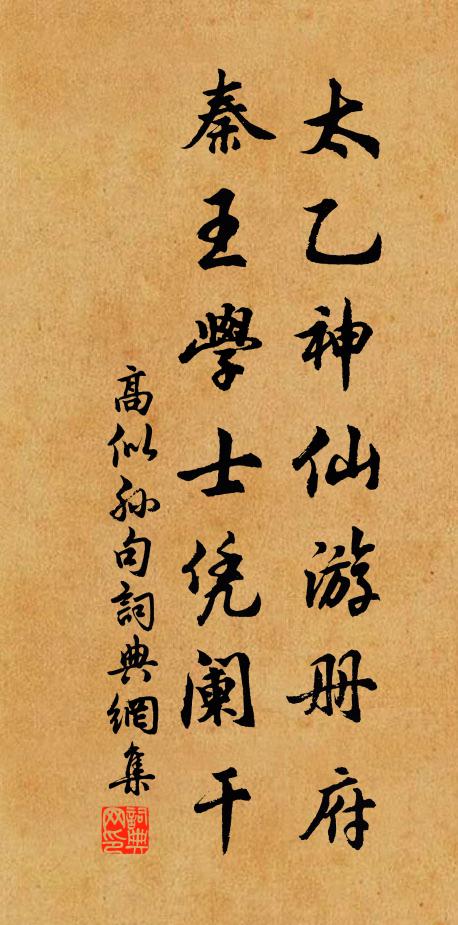 太乙神仙游册府
秦王學士凭阑干
高似孙句詞典網集
詞典网印